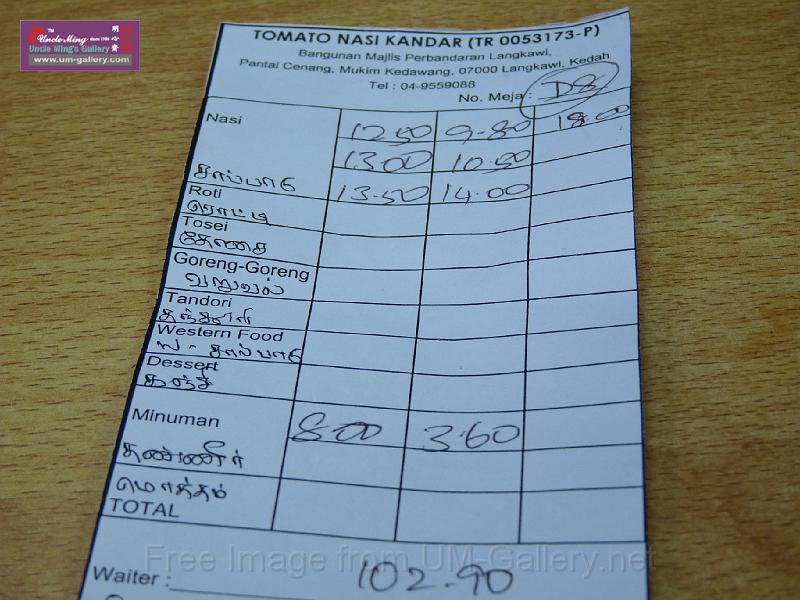 Uncle Ming since 1986
Uncle Ming's Gallery
www.um-gallery.com
TOMATO NASI KANDAR (TR 0053173-P)
Bangunan Majlis Perbandaran Langkawi,
Pantai Cenang, Mukim Kedawang, 07000 Langkawi, Kedah
Tel : 04-9559088
No. Meja : D8
Nasi 12 50 9-80 18.00
13.00 10.50
சாப்பாடு
Roti 13-50 14.00
ரொட்டி
Tosei
தோசை
Goreng-Goreng
வறுவல்
Tandori
தந்தூரி
Western Food
வ - சாப்பாடு
Dessert
Minuman 8.00 3.60
தண்ணீர்
மொத்தம்
TOTAL
Free Image from UM-Gallery.net
Waiter : 102-90